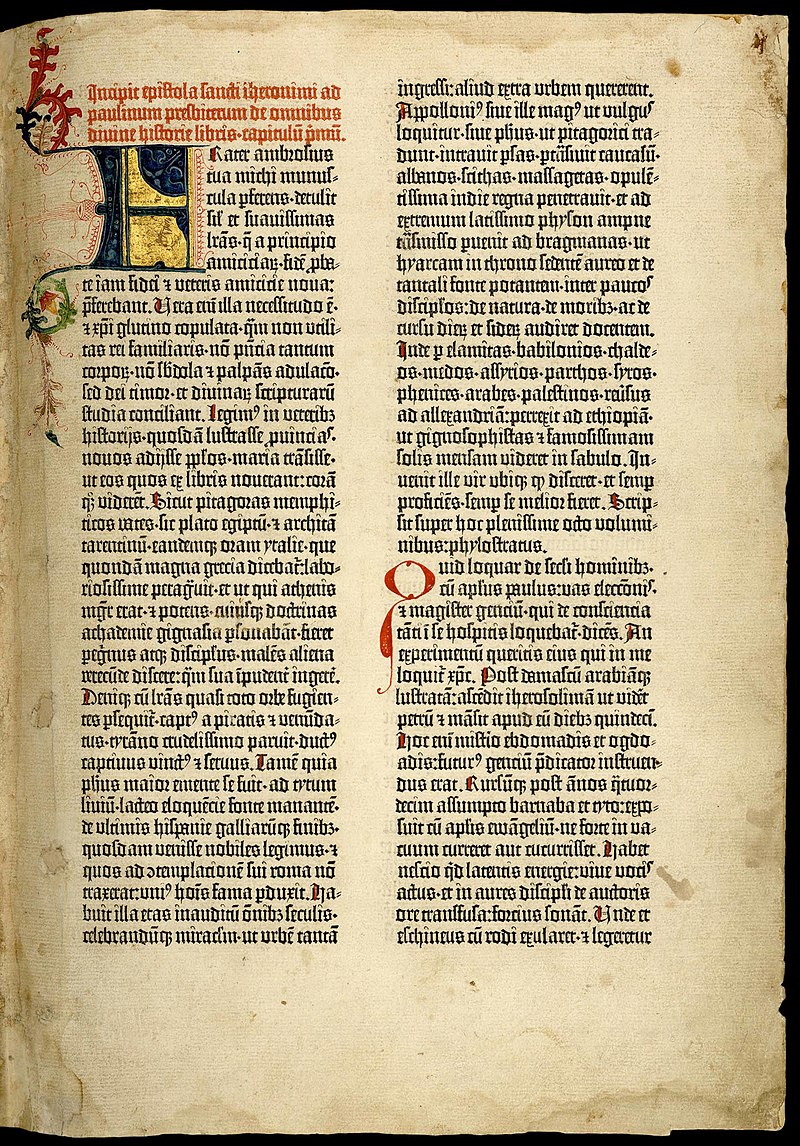 Incipit epistola sancti iheronimi ad
paulinum presbiterum de omnibus
divine historie libris·capitulū p̄mū.
Frater ambrosius
tua michi munus-
cula p̄ferens·detulit
sil̄ et suavissimas
lr̄as·q̄ a principio
amiciciaꝝ·fidē ꝓba-
te iam fidei ⁊ veteris amicicie noua:
p̄ferebant. Uera em̄ illa necessitudo ē·
⁊ xp̄i glutino copulata·q̄m non utili-
tas rei familiaris·nō pn̄cia tantum
corpoꝝ·nō sb̄dola ⁊ palpās adulaco͞·
sed dei timor·et divinaꝝ scripturarū
studia conciliant. Legimꝰ in veteribꝫ
historijs·quosdā lustrasse ꝓuinciaˢ·
nouos adijsse ppl̄os·maria trāsisse·
ut eos quos ex libris nouerant:corā
qꝫ viderēt. Sicut pitagoras memphi-
ticos vates·sic plato egiptū·⁊ architā
tarentinū·eandemqꝫ oram ytalie·que
quondā magna grecia dicebat̄:labo-
riosissime peragͥuit·et ut qui athenis
mgr̄ erat·⁊ potens·cuiusqꝫ doctrinas
achademie gignasia ꝑsonabāt·fieret
ꝑegͥnus atqꝫ discipl̄us·malēs aliena
verecūde discere:q̄m sua īpudent̄ ingerē.
Deniqꝫ cū lr̄as quasi toto orbe fugien-
tes ꝑsequit̄·captꝰ a piratis ⁊ venūda-
tus·tyrāno crudelissimo paruit·ductꝰ
captiuus vinctꝰ ⁊ seruus. Tamē quia
ph̄us maior emente se fuit·ad tytum
liuiū·lacteo eloquēcie fonte manantē·
de ultimis hispanie galliarūqꝫ finibꝫ·
quosdam venisse nobiles legimus·⁊
quos ad ↄtemplacionē sui roma nō
traxerat:uniꝰ hoīs fama ꝑduxit. Ha-
buit illa etas inauditū o͞nibꝫ seculis·
celebrandūqꝫ miracl̄m·ut urbē tantā
ingressi:aliud extra urbem quererent.
Appolloniꝰ siue ille magꝰ ut vulgus
loquitur·siue ph̄us·ut pitagorici tra-
dunt·intrauit ꝑsas·ꝑtrāsiuit caucasū·
albanos·scithas·massagetas·opulē-
tissima indie regna penetrauit·et ad
extremum latissimo physon ampne
trāsmisso ꝑuenit ad bragmanas·ut
hyarcam in throno sedentē aureo et de
tantali fonte potantem·inter paucos
discipl̄os:de natura·de moribꝫ·ac de
cursu dieꝝ et sideꝝ audiret docentem.
Inde ꝑ elamitas·babilonios·chalde-
os·medos·assyrios·parthos·syros·
phenices·arabes·palestinos·reūsus
ad allexandriā:perrexit ad ethiopiā·
ut gignosophistas ⁊ famosissimam
solis mensam videret in sabulo. In-
uenit ille vir ubiqꝫ ꝙ disceret·et semꝑ
proficiēs·semꝑ se melior fieret. Scrip-
sit super hoc plenissime octo volumi-
nibus:phylostratus.
Quid loquar de secl̄i hominibꝫ·
cū apl̄us paulus:vas elecc̄onis·
⁊ magister genciū·qui de consciencia
tāti ī se hospitis loquebat̄·dicēs. An
experimentū queritis eius qui in me
loquit̄ xp̄c. Post damascū arabiāqꝫ
lustratā:ascēdit iherosolimā ut vidēt
petrū ⁊ māsit apud eū diebꝫ quindecī.
Hoc em̄ mistio ebdomadis et ogdo-
adis:futurꝰ genciū p̄dicator instruen-
dus erat. Rursūqꝫ post ānos q̄tuor-
decim assumpto barnaba et tyto:expo-
suit cū apl̄is ewāgeliū·ne forte in va-
cuum curreret aut cucurrisset. Habet
nescio qͥd latentis energie:viue vocis
actus·et in aures discipl̄i de auctoris
ore transfusa:forcius sonāt. Unde et
eschineus cū rodi exularet·⁊ legeretur